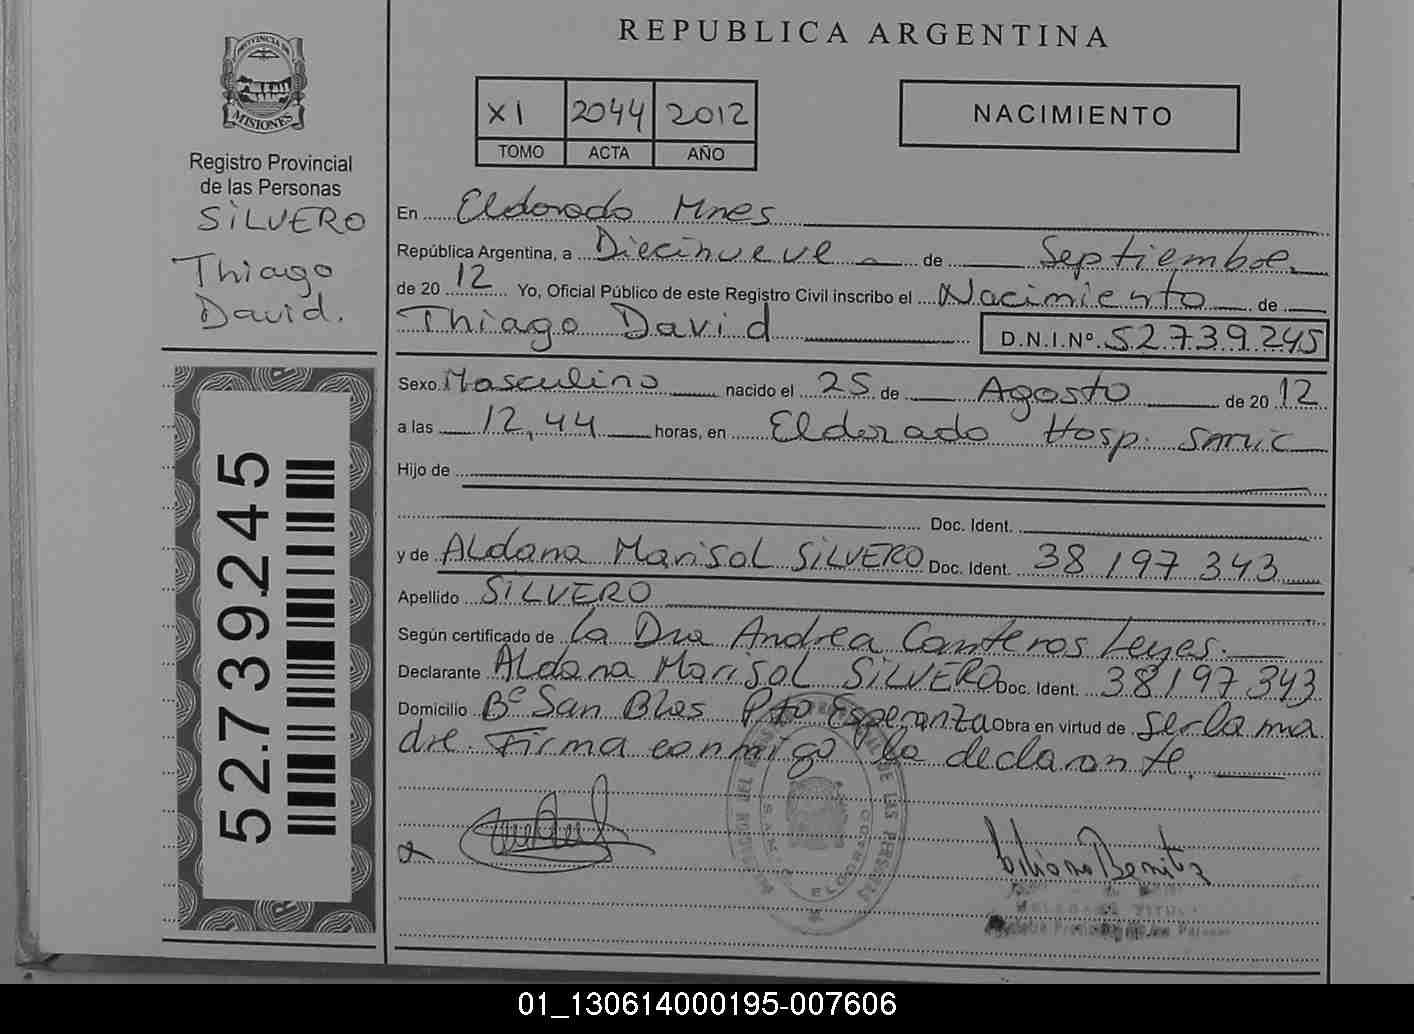 PROVINCIA DE
MISIONES
Registro Provincial
de las Personas
SILVERO
Thiago
David.
52.739.245
REPUBLICA ARGENTINA
XI 2044 2012
TOMO ACTA AÑO
NACIMIENTO
En Eldorado Mnes
República Argentina, a Diecinueve de Septiembre
de 20 12 Yo, Oficial Público de este Registro Civil inscribo el Nacimiento de
Thiago David D.N.I.Nº. 52.739.245
Sexo Masculino nacido el 25 de Agosto de 20 12
a las 12,44 horas, en Eldorado Hosp. Smic
Hijo de
Doc. Ident.
y de Aldana Marisol SILVERO Doc. Ident. 38 197 343
Apellido SILVERO
Según certificado de la Dra Andrea Canteros Leyes.
Declarante Aldana Marisol SILVERO Doc. Ident. 38 197 343
Domicilio Bº San Blas Pto Esperanza Obra en virtud de ser la ma
dre. Firma conmigo la declarante.
Benitez
01_130614000195-007606